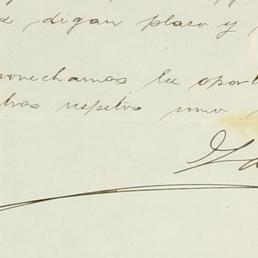 digan plazo y
rovechamos la oport
tros respetos